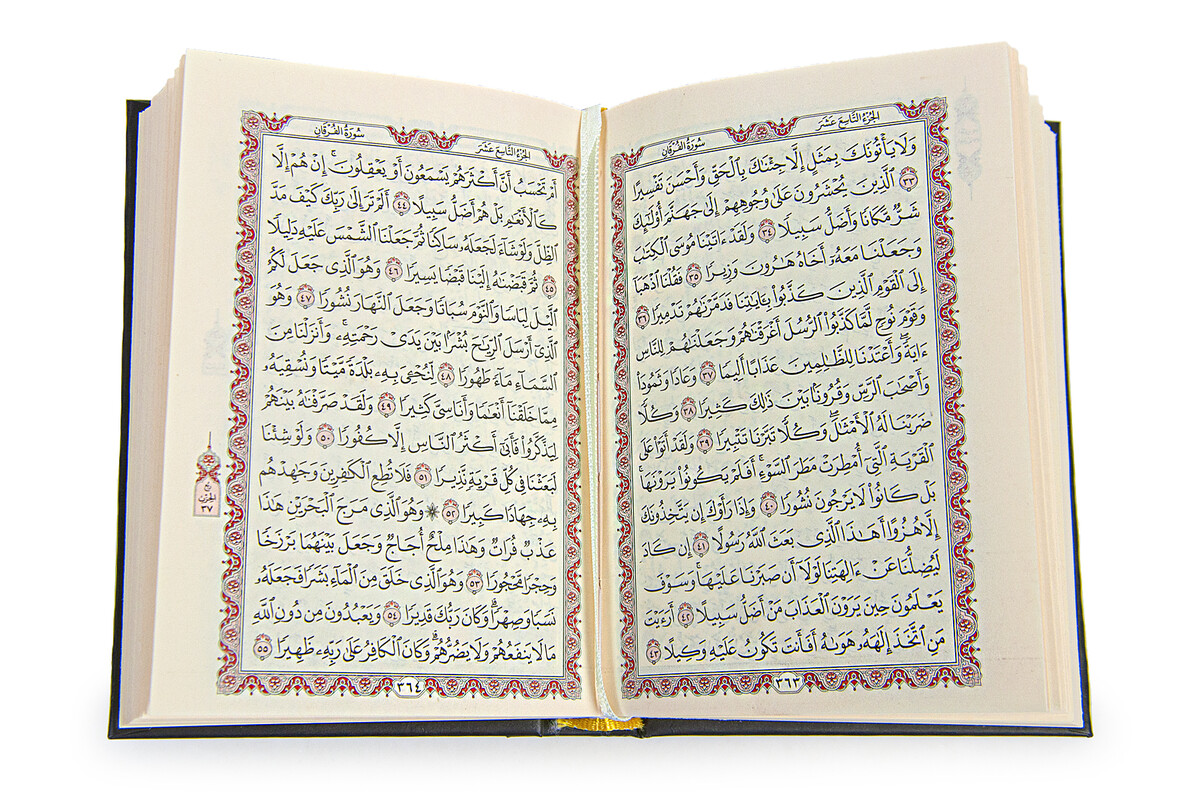 الجُزْءُ التَّاسِعَ عَشَرَ سُورَةُ الفُرْقَانِ
وَلَا يَأْتُونَكَ بِمَثَلٍ إِلَّا جِئْنَٰكَ بِٱلْحَقِّ وَأَحْسَنَ تَفْسِيرًا
٣٣ ٱلَّذِينَ يُحْشَرُونَ عَلَىٰ وُجُوهِهِمْ إِلَىٰ جَهَنَّمَ أُوْلَٰٓئِكَ
شَرٌّ مَّكَانًا وَأَضَلُّ سَبِيلًا ٣٤ وَلَقَدْ ءَاتَيْنَا مُوسَى ٱلْكِتَٰبَ
وَجَعَلْنَا مَعَهُۥٓ أَخَاهُ هَٰرُونَ وَزِيرًا ٣٥ فَقُلْنَا ٱذْهَبَآ
إِلَى ٱلْقَوْمِ ٱلَّذِينَ كَذَّبُوا۟ بِـَٔايَٰتِنَا فَدَمَّرْنَٰهُمْ تَدْمِيرًا ٣٦
وَقَوْمَ نُوحٍ لَّمَّا كَذَّبُوا۟ ٱلرُّسُلَ أَغْرَقْنَٰهُمْ وَجَعَلْنَٰهُمْ لِلنَّاسِ
ءَايَةً وَأَعْتَدْنَا لِلظَّٰلِمِينَ عَذَابًا أَلِيمًا ٣٧ وَعَادًا وَثَمُودًا
وَأَصْحَٰبَ ٱلرَّسِّ وَقُرُونًۢا بَيْنَ ذَٰلِكَ كَثِيرًا ٣٨ وَكُلًّا
ضَرَبْنَا لَهُ ٱلْأَمْثَٰلَ وَكُلًّا تَبَّرْنَا تَتْبِيرًا ٣٩ وَلَقَدْ أَتَوْا۟ عَلَى
ٱلْقَرْيَةِ ٱلَّتِىٓ أُمْطِرَتْ مَطَرَ ٱلسَّوْءِ أَفَلَمْ يَكُونُوا۟ يَرَوْنَهَا
بَلْ كَانُوا۟ لَا يَرْجُونَ نُشُورًا ٤٠ وَإِذَا رَأَوْكَ إِن يَتَّخِذُونَكَ
إِلَّا هُزُؤًا أَهَٰذَا ٱلَّذِى بَعَثَ ٱللَّهُ رَسُولًا ٤١ إِن كَادَ
لَيُضِلُّنَا عَنْ ءَالِهَتِنَا لَوْلَآ أَن صَبَرْنَا عَلَيْهَا وَسَوْفَ
يَعْلَمُونَ حِينَ يَرَوْنَ ٱلْعَذَابَ مَنْ أَضَلُّ سَبِيلًا ٤٢ أَرَءَيْتَ
مَنِ ٱتَّخَذَ إِلَٰهَهُۥ هَوَىٰهُ أَفَأَنتَ تَكُونُ عَلَيْهِ وَكِيلًا ٤٣
٣٦٣
الجُزْءُ التَّاسِعَ عَشَرَ سُورَةُ الفُرْقَانِ
أَمْ تَحْسَبُ أَنَّ أَكْثَرَهُمْ يَسْمَعُونَ أَوْ يَعْقِلُونَ إِنْ هُمْ إِلَّا
كَٱلْأَنْعَٰمِ بَلْ هُمْ أَضَلُّ سَبِيلًا ٤٤ أَلَمْ تَرَ إِلَىٰ رَبِّكَ كَيْفَ مَدَّ
ٱلظِّلَّ وَلَوْ شَآءَ لَجَعَلَهُۥ سَاكِنًا ثُمَّ جَعَلْنَا ٱلشَّمْسَ عَلَيْهِ دَلِيلًا
٤٥ ثُمَّ قَبَضْنَٰهُ إِلَيْنَا قَبْضًا يَسِيرًا ٤٦ وَهُوَ ٱلَّذِى جَعَلَ لَكُمُ
ٱلَّيْلَ لِبَاسًا وَٱلنَّوْمَ سُبَاتًا وَجَعَلَ ٱلنَّهَارَ نُشُورًا ٤٧ وَهُوَ
ٱلَّذِىٓ أَرْسَلَ ٱلرِّيَٰحَ نُشُرًۢا بَيْنَ يَدَىْ رَحْمَتِهِۦ وَأَنزَلْنَا مِنَ
ٱلسَّمَآءِ مَآءً طَهُورًا ٤٨ لِّنُحْـِۧىَ بِهِۦ بَلْدَةً مَّيْتًا وَنُسْقِيَهُۥ
مِمَّا خَلَقْنَآ أَنْعَٰمًا وَأَنَاسِىَّ كَثِيرًا ٤٩ وَلَقَدْ صَرَّفْنَٰهُ بَيْنَهُمْ
لِيَذَّكَّرُوا۟ فَأَبَىٰٓ أَكْثَرُ ٱلنَّاسِ إِلَّا كُفُورًا ٥٠ وَلَوْ شِئْنَا
لَبَعَثْنَا فِى كُلِّ قَرْيَةٍ نَّذِيرًا ٥١ فَلَا تُطِعِ ٱلْكَٰفِرِينَ وَجَٰهِدْهُم
بِهِۦ جِهَادًا كَبِيرًا ٥٢ وَهُوَ ٱلَّذِى مَرَجَ ٱلْبَحْرَيْنِ هَٰذَا
عَذْبٌ فُرَاتٌ وَهَٰذَا مِلْحٌ أُجَاجٌ وَجَعَلَ بَيْنَهُمَا بَرْزَخًا
وَحِجْرًا مَّحْجُورًا ٥٣ وَهُوَ ٱلَّذِى خَلَقَ مِنَ ٱلْمَآءِ بَشَرًا فَجَعَلَهُۥ
نَسَبًا وَصِهْرًا وَكَانَ رَبُّكَ قَدِيرًا ٥٤ وَيَعْبُدُونَ مِن دُونِ ٱللَّهِ
مَا لَا يَنفَعُهُمْ وَلَا يَضُرُّهُمْ وَكَانَ ٱلْكَافِرُ عَلَىٰ رَبِّهِۦ ظَهِيرًا ٥٥
الحزب
٣٧
٣٦٤